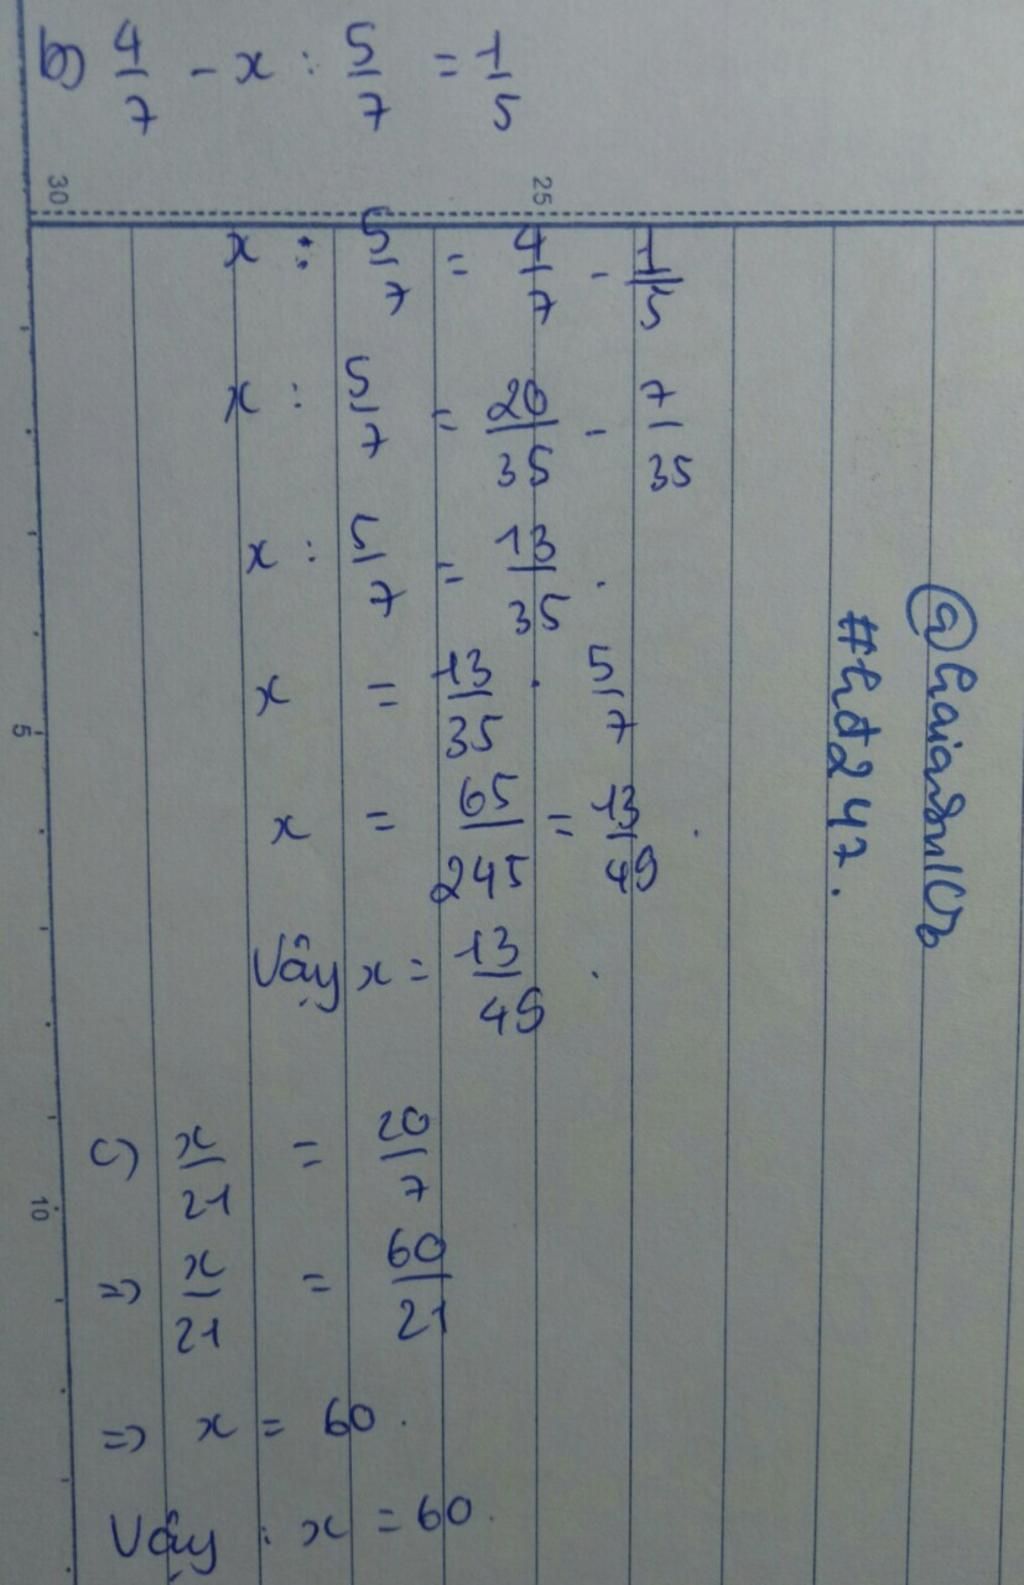 b) 4/7 - x : 5/7 = 1/5
30 25
x : 5/7 = 4/7 - 1/5
x : 5/7 = 20/35 - 7/35
x : 5/7 = 13/35 .
x = 13/35 . 5/7
x = 65/245 = 13/49 .
Vậy x = 13/49 .
c) x/21 = 20/7
=> x/21 = 60/21
=> x = 60 .
Vậy : x = 60 .
5
10
#hd247.